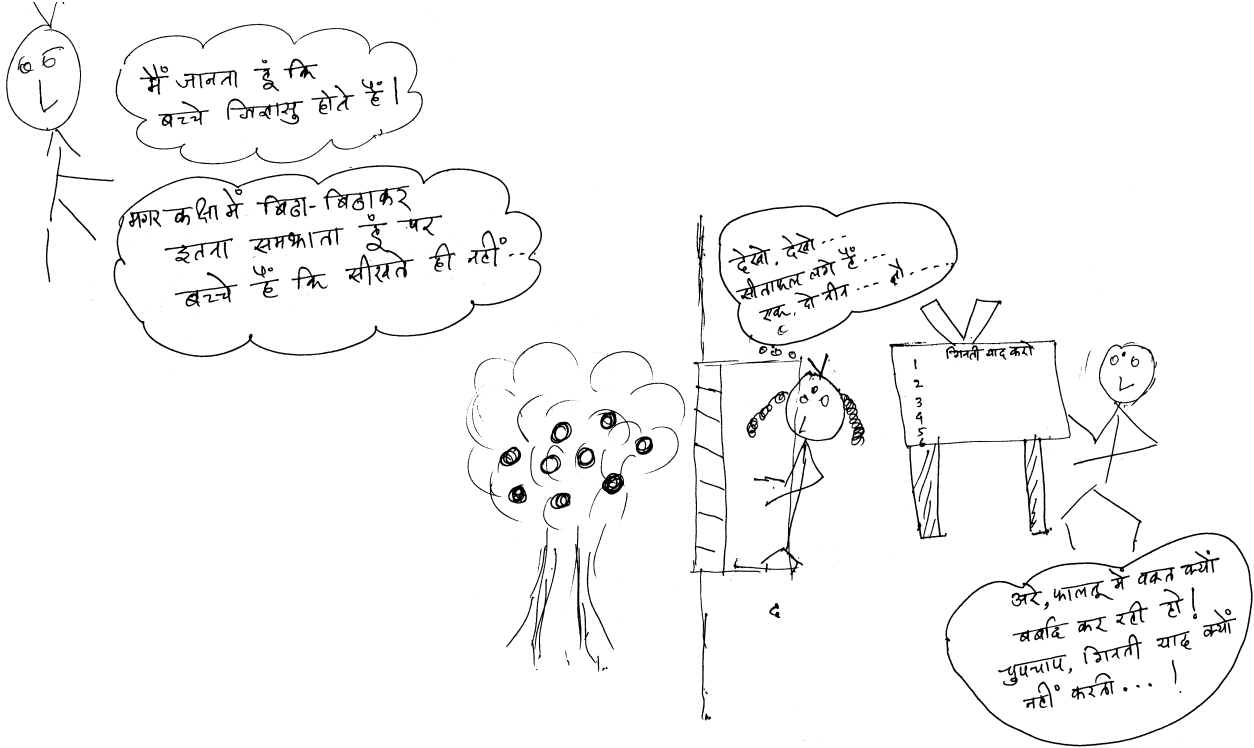 मैं जानता हूं कि
बच्चे जिज्ञासु होते हैं।
मगर कक्षा में बिठा-बिठाकर
इतना समझाता हूं पर
बच्चे हैं कि सीखते ही नहीं...
देखो, देखो....
सीताफल लगे हैं...
एक, दो तीन... नौ.....
गिनती याद करो
1
2
3
4
5
6
अरे, फालतू में वक्त क्यों
बर्बाद कर रही हो!
चुपचाप, गिनती याद क्यों
नहीं करती... !